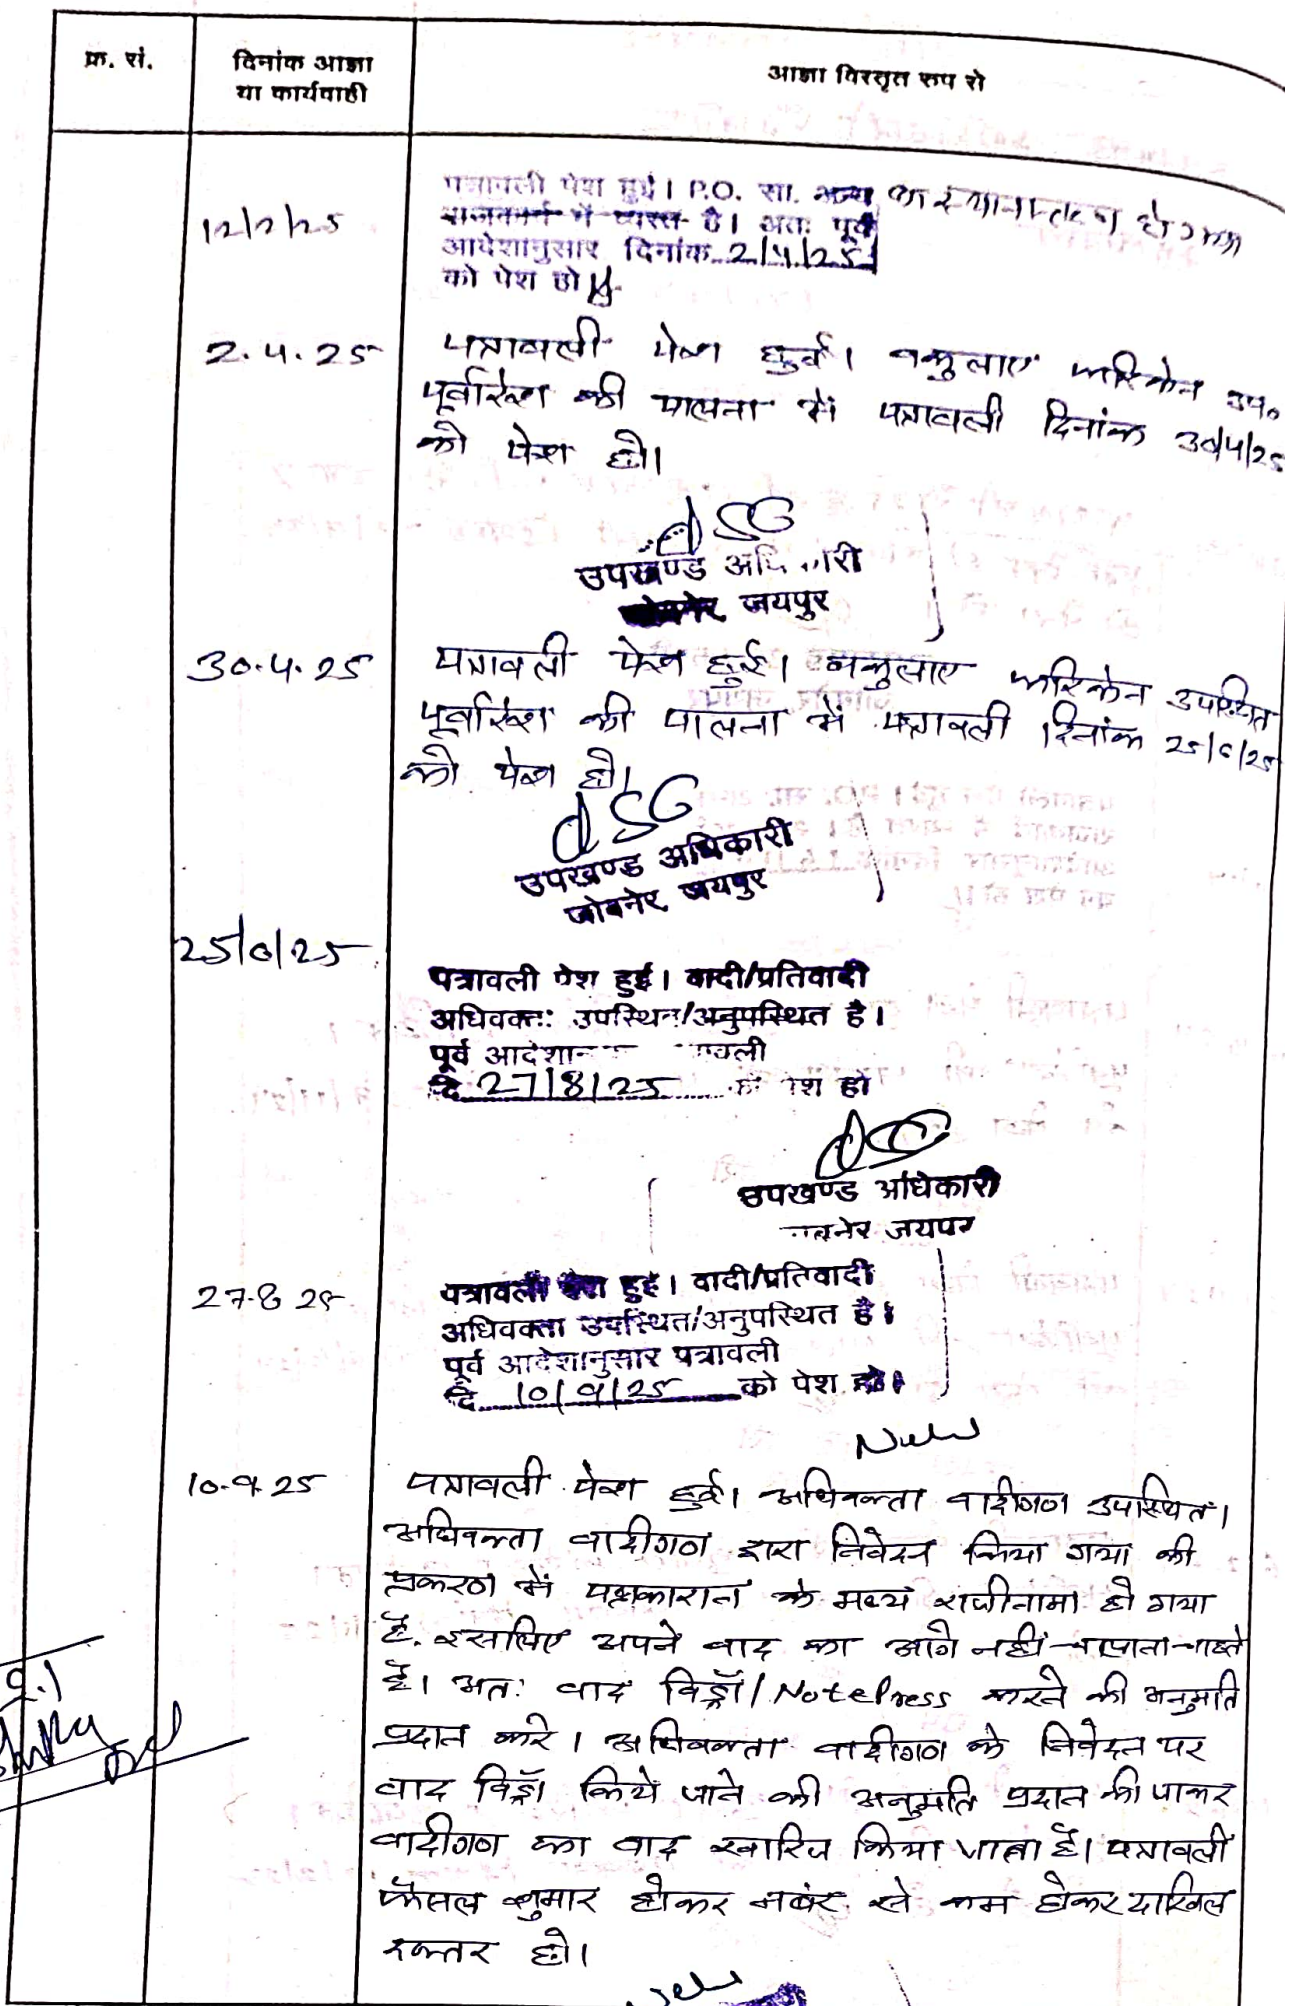 क्र. सं.
दिनांक आज्ञा
या कार्यवाही
आज्ञा विस्तृत रूप से
12/2/25
पत्रावली पेश हुई। P.O. सा. अन्य का स्थानान्तरण हो गया
राजकार्य में व्यस्त है। अतः पूर्व
आदेशानुसार दिनांक 2/4/25
को पेश हो
2.4.25
पत्रावली पेश हुई। वकुलाए फरिकेन उप०
पूर्वादेश की पालना में पत्रावली दिनांक 30/4/25
को पेश हो।
उपखण्ड अधि..ारी
जयपुर
30.4.25
पत्रावली पेश हुई। वकुलाए फरिकेन उपस्थित
पूर्वादेश की पालना में पत्रावली दिनांक 25/6/25
को पेश हो।
उपखण्ड अधिकारी
जोबनेर, जयपुर
25/6/25
पत्रावली पेश हुई। वादी/प्रतिवादी
अधिवक्ता उपस्थित/अनुपस्थित है।
पूर्व
दि 27/8/25 पेश हो
उपखण्ड अधिकारी
जयपुर
27.8 25
पत्रावली पेश हुई। वादी/प्रतिवादी
अधिवक्ता उपस्थित/अनुपस्थित है।
पूर्व आदेशानुसार पत्रावली
दि 10/9/25 को पेश हो।
10.9.25
पत्रावली पेश हुई। अधिवक्ता वादीगण उपस्थित।
अधिवक्ता वादीगण द्वारा निवेदन किया गया की
प्रकरण में पक्षकारान के मध्य राजीनामा हो गया
है. इसलिए अपने वाद का आगे नहीं चलाना चाहते
है। अतः वाद विड्रॉ/Notepress करने की अनुमति
प्रदान करे। अधिवक्ता वादीगण के निवेदन पर
वाद विड्रॉ किये जाने की अनुमति प्रदान की जाकर
वादीगण का वाद खारिज किया जाता है। पत्रावली
फैसल शुमार होकर नबंर से कम होकर दाखिल
दफ्तर हो।